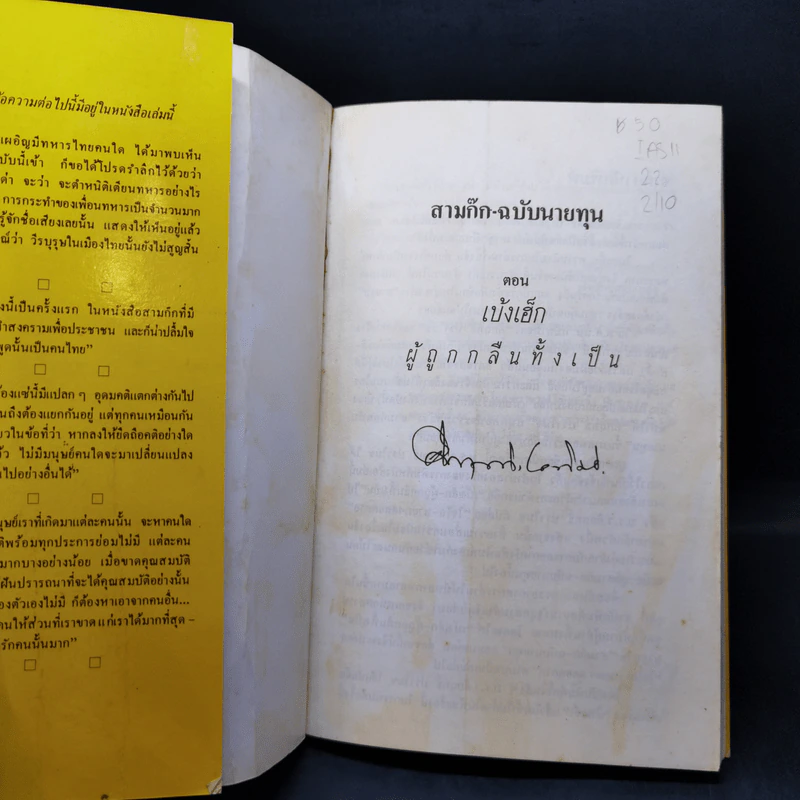 ข้อความต่อไปนี้มีอยู่ในหนังสือเล่มนี้
เผอิญมีทหารไทยคนใด ได้มาพบเห็น
ฉบับนี้เข้า ก็ขอได้โปรดรำลึกไว้ด้วยว่า
ด่า จะว่า จะตำหนิติเตียนทหารอย่างไร
การกระทำของเพื่อนทหารเป็นจำนวนมาก
รู้จักชื่อเสียงเลยนั้น แสดงให้เห็นอยู่แล้ว
ว่า วีรบุรุษในเมืองไทยนั้นยังไม่สูญสิ้น
นี้เป็นครั้งแรก ในหนังสือสามก๊กที่มี
ทำสงครามเพื่อประชาชน และก็น่าปลื้มใจ
พูดนั้นเป็นคนไทย"
นี้มีแปลก ๆ อุดมคติแตกต่างกันไป
ถึงต้องแยกกันอยู่ แต่ทุกคนเหมือนกัน
ในข้อที่ว่า หากลงให้ยึดถือคติอย่างใด
แล้ว ไม่มีมนุษย์คนใดจะมาเปลี่ยนแปลง
ไปอย่างอื่นได้"
มนุษย์เราที่เกิดมาแต่ละคนนั้น จะหาคนใด
พร้อมทุกประการย่อมไม่มี แต่ละคน
มากบางอย่างน้อย เมื่อขาดคุณสมบัติ
ฝันปรารถนาที่จะได้คุณสมบัติอย่างนั้น
ของตัวเองไม่มี ก็ต้องหาเอาจากคนอื่น...
คนให้ส่วนที่เราขาดแก่เราได้มากที่สุด –
รักคนนั้นมาก"
สามก๊ก-ฉบับนายทุน
ตอน
เบ้งเฮ็ก
ผู้ถูกกลืนทั้งเป็น
22
2/10